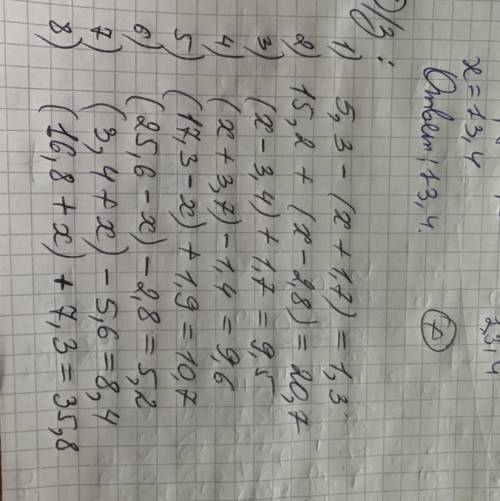 x = 13,4
Ответ: 13,4.
Д/з:
1) 5,3 - (x + 1,7) = 1,3
2) 15,2 + (x - 2,8) = 20,7
3) (x - 3,4) + 1,7 = 9,5
4) (x + 3,7) - 1,4 = 9,6
5) (17,3 - x) + 1,9 = 10,7
6) (25,6 - x) - 2,8 = 5,2
7) (3,4 + x) - 5,6 = 8,4
8) (16,8 + x) + 7,3 = 35,8